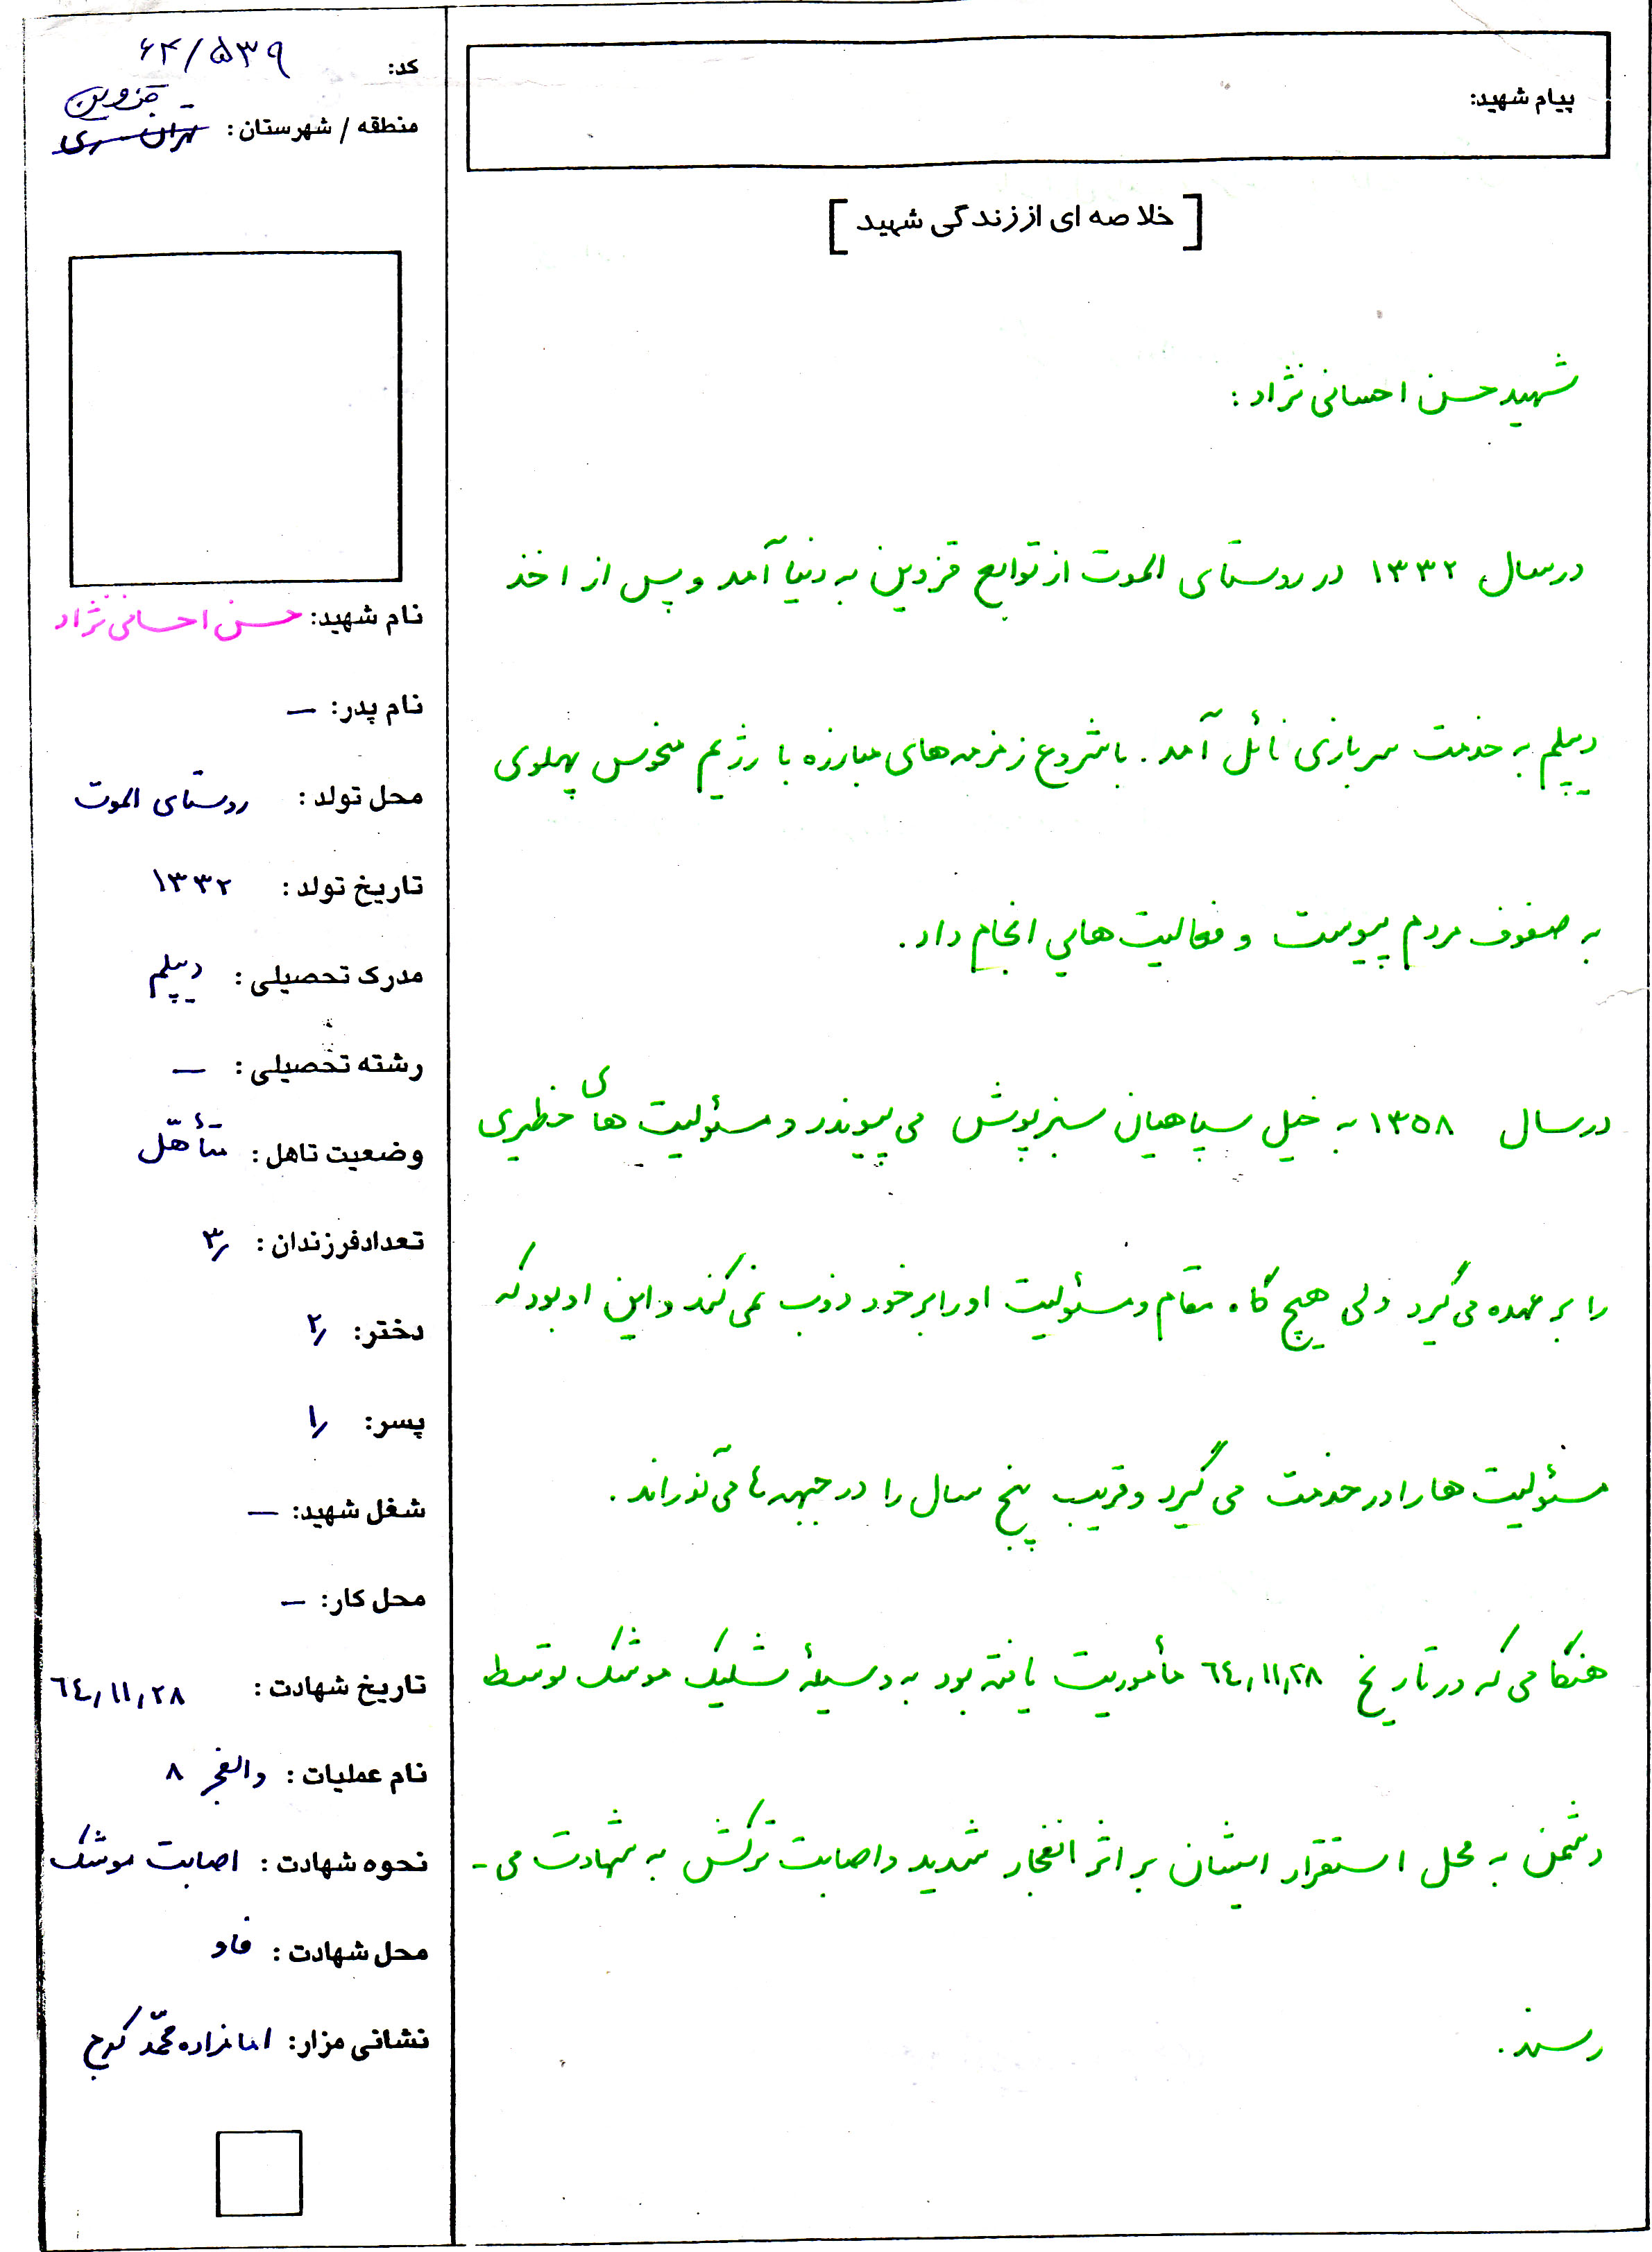 پیام شهید:
[خلاصه ای از زندگی شهید]
شهید حسن احسانی نژاد:
در سال ۱۳۳۲ در روستای الموت از توابع قزوین به دنیا آمد و پس از اخذ
دیپلم به خدمت سربازی نائل آمد. با شروع زمزمه های مبارزه با رژیم منحوس پهلوی
به صفوف مردم پیوست و فعالیت هایی انجام داد.
در سال ۱۳۵۸ به خیل سپاهیان سبزپوش می پیوندد و مسئولیت های خطیری
را بر عهده می گیرد ولی هیچ گاه مقام و مسئولیت او را بر خود ذوب نمی کند و این او بود که
مسئولیت ها را در خدمت می گیرد و قریب پنج سال را در جبهه ها می گذراند.
هنگامی که در تاریخ ٦٤,١١,٢٨ مأموریت یافته بود به وسیلهٔ شلیک موشک توسط
دشمن به محل استقرار ایشان بر اثر انفجار شدید و اصابت ترکش به شهادت می-
رسند.
کد: ۶۴/۵۳۹
قزوین
منطقه / شهرستان: تهران - ری
نام شهید: حسن احسانی نژاد
نام پدر: —
محل تولد: روستای الموت
تاریخ تولد: ۱۳۳۲
مدرک تحصیلی: دیپلم
رشته تحصیلی: —
وضعیت تاهل: متأهّل
تعداد فرزندان: ۳
دختر: ۲
پسر: ۱
شغل شهید: —
محل کار: —
تاریخ شهادت: ٦٤,١١,٢٨
نام عملیات: والفجر ۸
نحوه شهادت: اصابت موشک
محل شهادت: فاو
نشانی مزار: امامزاده محمّد کرج